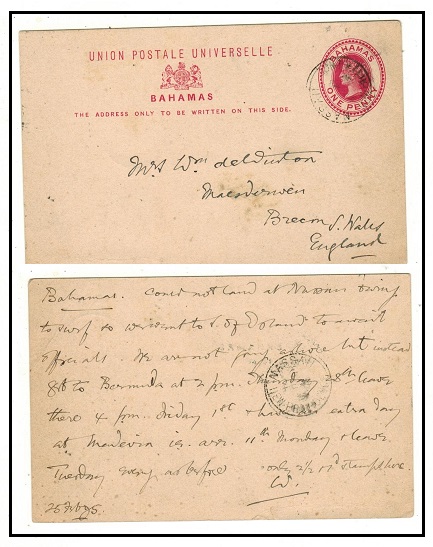 UNION POSTALE UNIVERSELLE
BAHAMAS
THE ADDRESS ONLY TO BE WRITTEN ON THIS SIDE.
BAHAMAS
ONE PENNY
NASSAU
Mrs Wm de Winton
Maesderwen
Brecon S. Wales
England
Bahamas. Could not land at Nassau owing
to surf so we went to S. of Island to await
officials. We are not going but instead
to Bermuda at 2 pm. leave
there 4 pm. Friday 1st & have extra day
at Madeira ie. arr. 11th Monday & leave
Tuesday evening as before only 2½ & 1d stamps here.
NASSAU